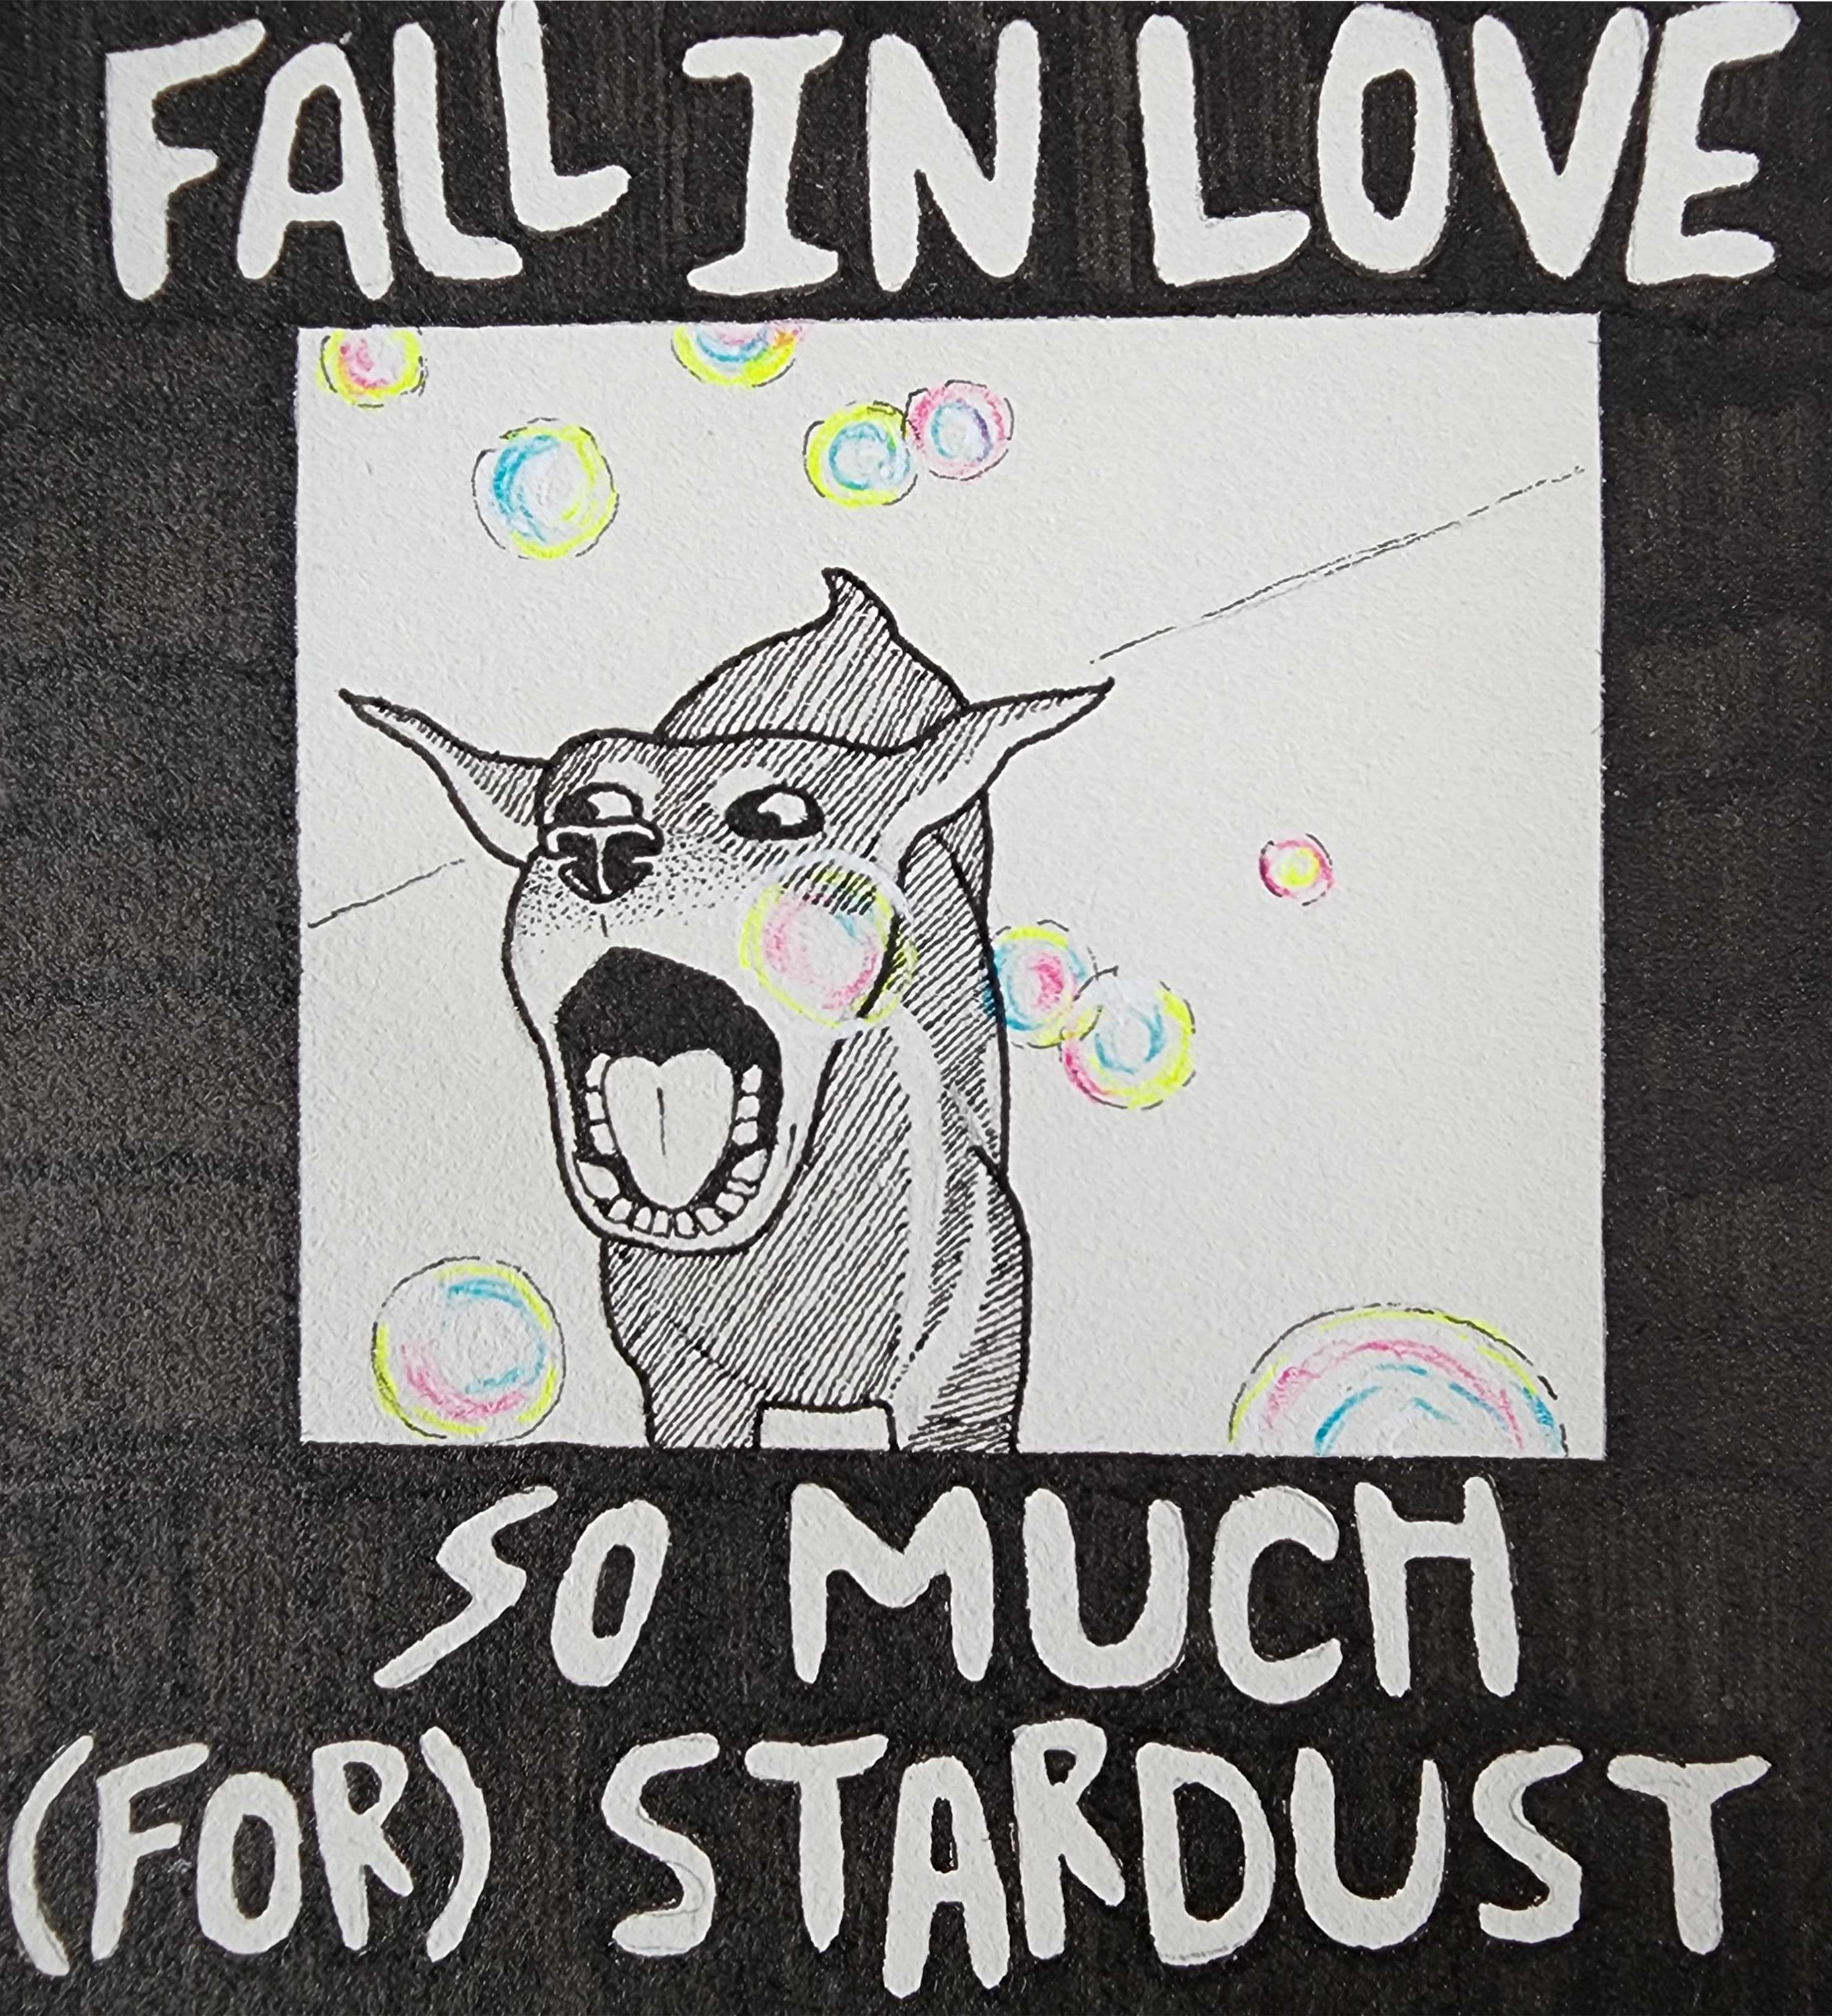 FALL IN LOVE
SO MUCH
(FOR) STARDUST